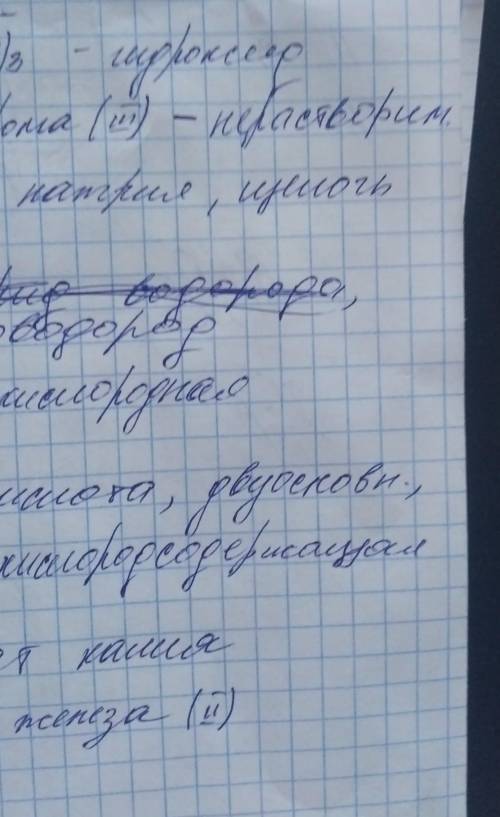 )₃ - гидроксид
рома (III) - нерастворим.
натрия, щелочь
рид водорода,
оводород
кислородная
ислота, двуосновн.,
кислородсодержащая
ет калия
железа (II)